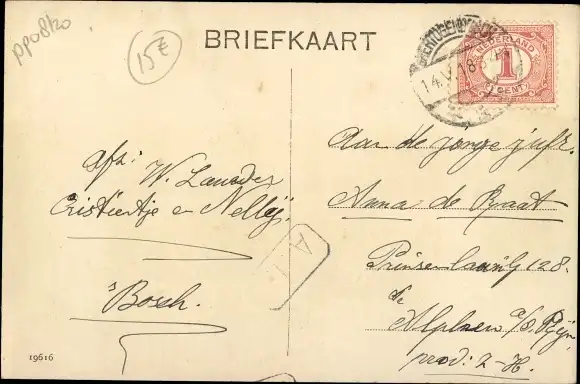 pp08/20
15€
BRIEFKAART
'S HERTOGENBOSCH
14.V 18
NEDERLAND
1
CENT
Afz: W. Lander
Cristientje en Nellij.
's Bosch.
Aan de jonge jufr.
Anna de Raat
Prinsenlaan 128.
te
Alphen a/d. Rijn
prov: Z-H.
A.L.
19616